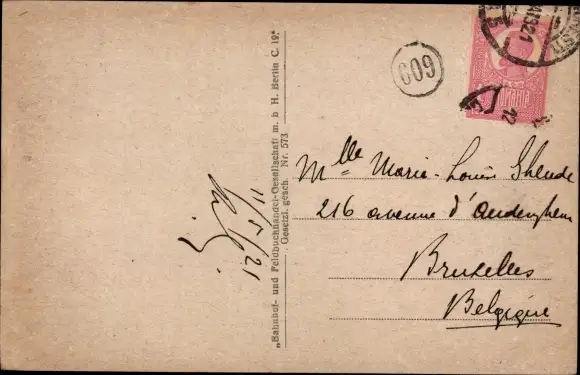 11/5/21
„Bahnhof- und Feldbuchhandel-Gesellschaft m. b. H. Berlin C. 19“
Gesetzl. gesch. Nr. 573
609
1921
MANIA
Mlle Marie-Louise
216 avenue d'Auderghem
Bruxelles
Belgique